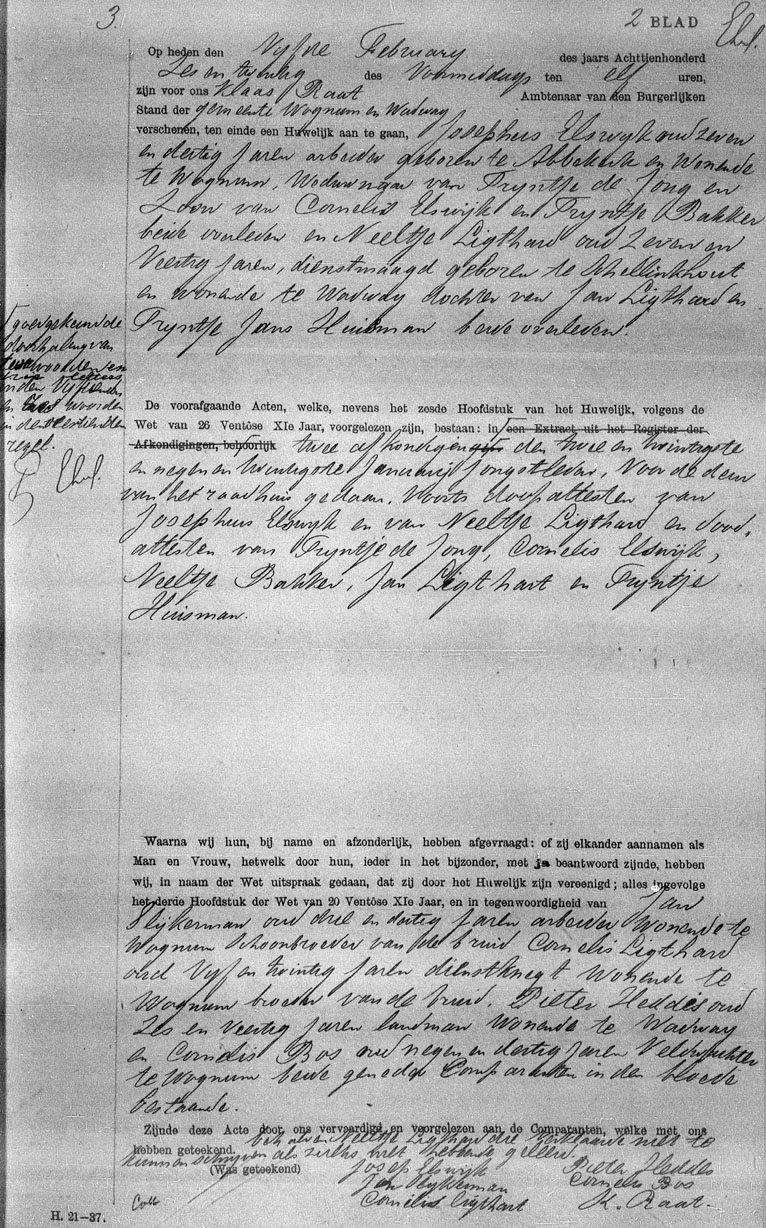 3.
2 BLAD
Op heden den Vyfde February des jaars Achttienhonderd
Zes en twintig des Voormiddags ten elf uren,
zijn voor ons Klaas Raat Ambtenaar van den Burgerlijken
Stand der gemeente Wognum en Wadway
verschenen, ten einde een Huwelijk aan te gaan, Josephus Elswyk oud zeven
en dertig Jaren arbeider geboren te Abbekerk en Wonende
te Wognum, Weduwnaar van Tryntje de Jong en
Zoon van Cornelis Elswijk en Tryntje Bakker
beide overleden en Neeltje Ligthard oud Zeven en
Veertig Jaren, dienstmaagd geboren te Schellinkhout
en wonende te Wadway dochter van Jan Ligthard en
Tryntje Jans Huisman beide overleden.
goedgekeurd de
doorhaling van
twee woorden en
letters
in den
en woorden
in de veertienden
regel.
De voorafgaande Acten, welke, nevens het zesde Hoofdstuk van het Huwelijk, volgens de
Wet van 26 Ventôse XIe Jaar, voorgelezen zijn, bestaan: in een Extract uit het Register der
Afkondigingen, behoorlijk twee afkondigingen den twee en twintigste
en negen en twintigste January Jongstleden, Voor de deur
van het raadhuis gedaan. Voorts doopattesten van
Josephus Elswyk en van Neeltje Ligthard en dood,
attesten van Tryntje de Jong, Cornelis Elswijk,
Neeltje Bakker, Jan Ligthart en Tryntje
Huisman.
Waarna wij hun, bij name en afzonderlijk, hebben afgevraagd: of zij elkander aannamen als
Man en Vrouw, hetwelk door hun, ieder in het bijzonder, met ja beantwoord zijnde, hebben
wij, in naam der Wet uitspraak gedaan, dat zij door het Huwelijk zijn vereenigd; alles ingevolge
het derde Hoofdstuk der Wet van 20 Ventôse XIe Jaar, en in tegenwoordigheid van Jan
Slijkerman oud drie en dertig Jaren arbeider Wonende te
Wognum Schoonbroeder van de bruid Cornelis Ligthard
oud Vyf en twintig Jaren dienstknegt Wonende te
Wognum broeder van de bruid. Pieter Heddes oud
Zes en Veertig Jaren landman Wonende te Wadway
en Cornelis Bos oud negen en dertig Jaren Veldwachter
te Wognum beide genoder Comparanten in den bloede
bestaande.
Zijnde deze Acte door ons vervaardigd en voorgelezen aan de Comparanten, welke met ons
hebben geteekend. behalven Neeltje Ligthard die verklaarde niet te
kunnen schryven als zulks niet hebbende geleerd.
(Was geteekend) Josep Elswijk Pieter Heddes
Jan Slykerman Cornelis Bos
Cornelius Ligthart K. Raat.
H. 21-37.